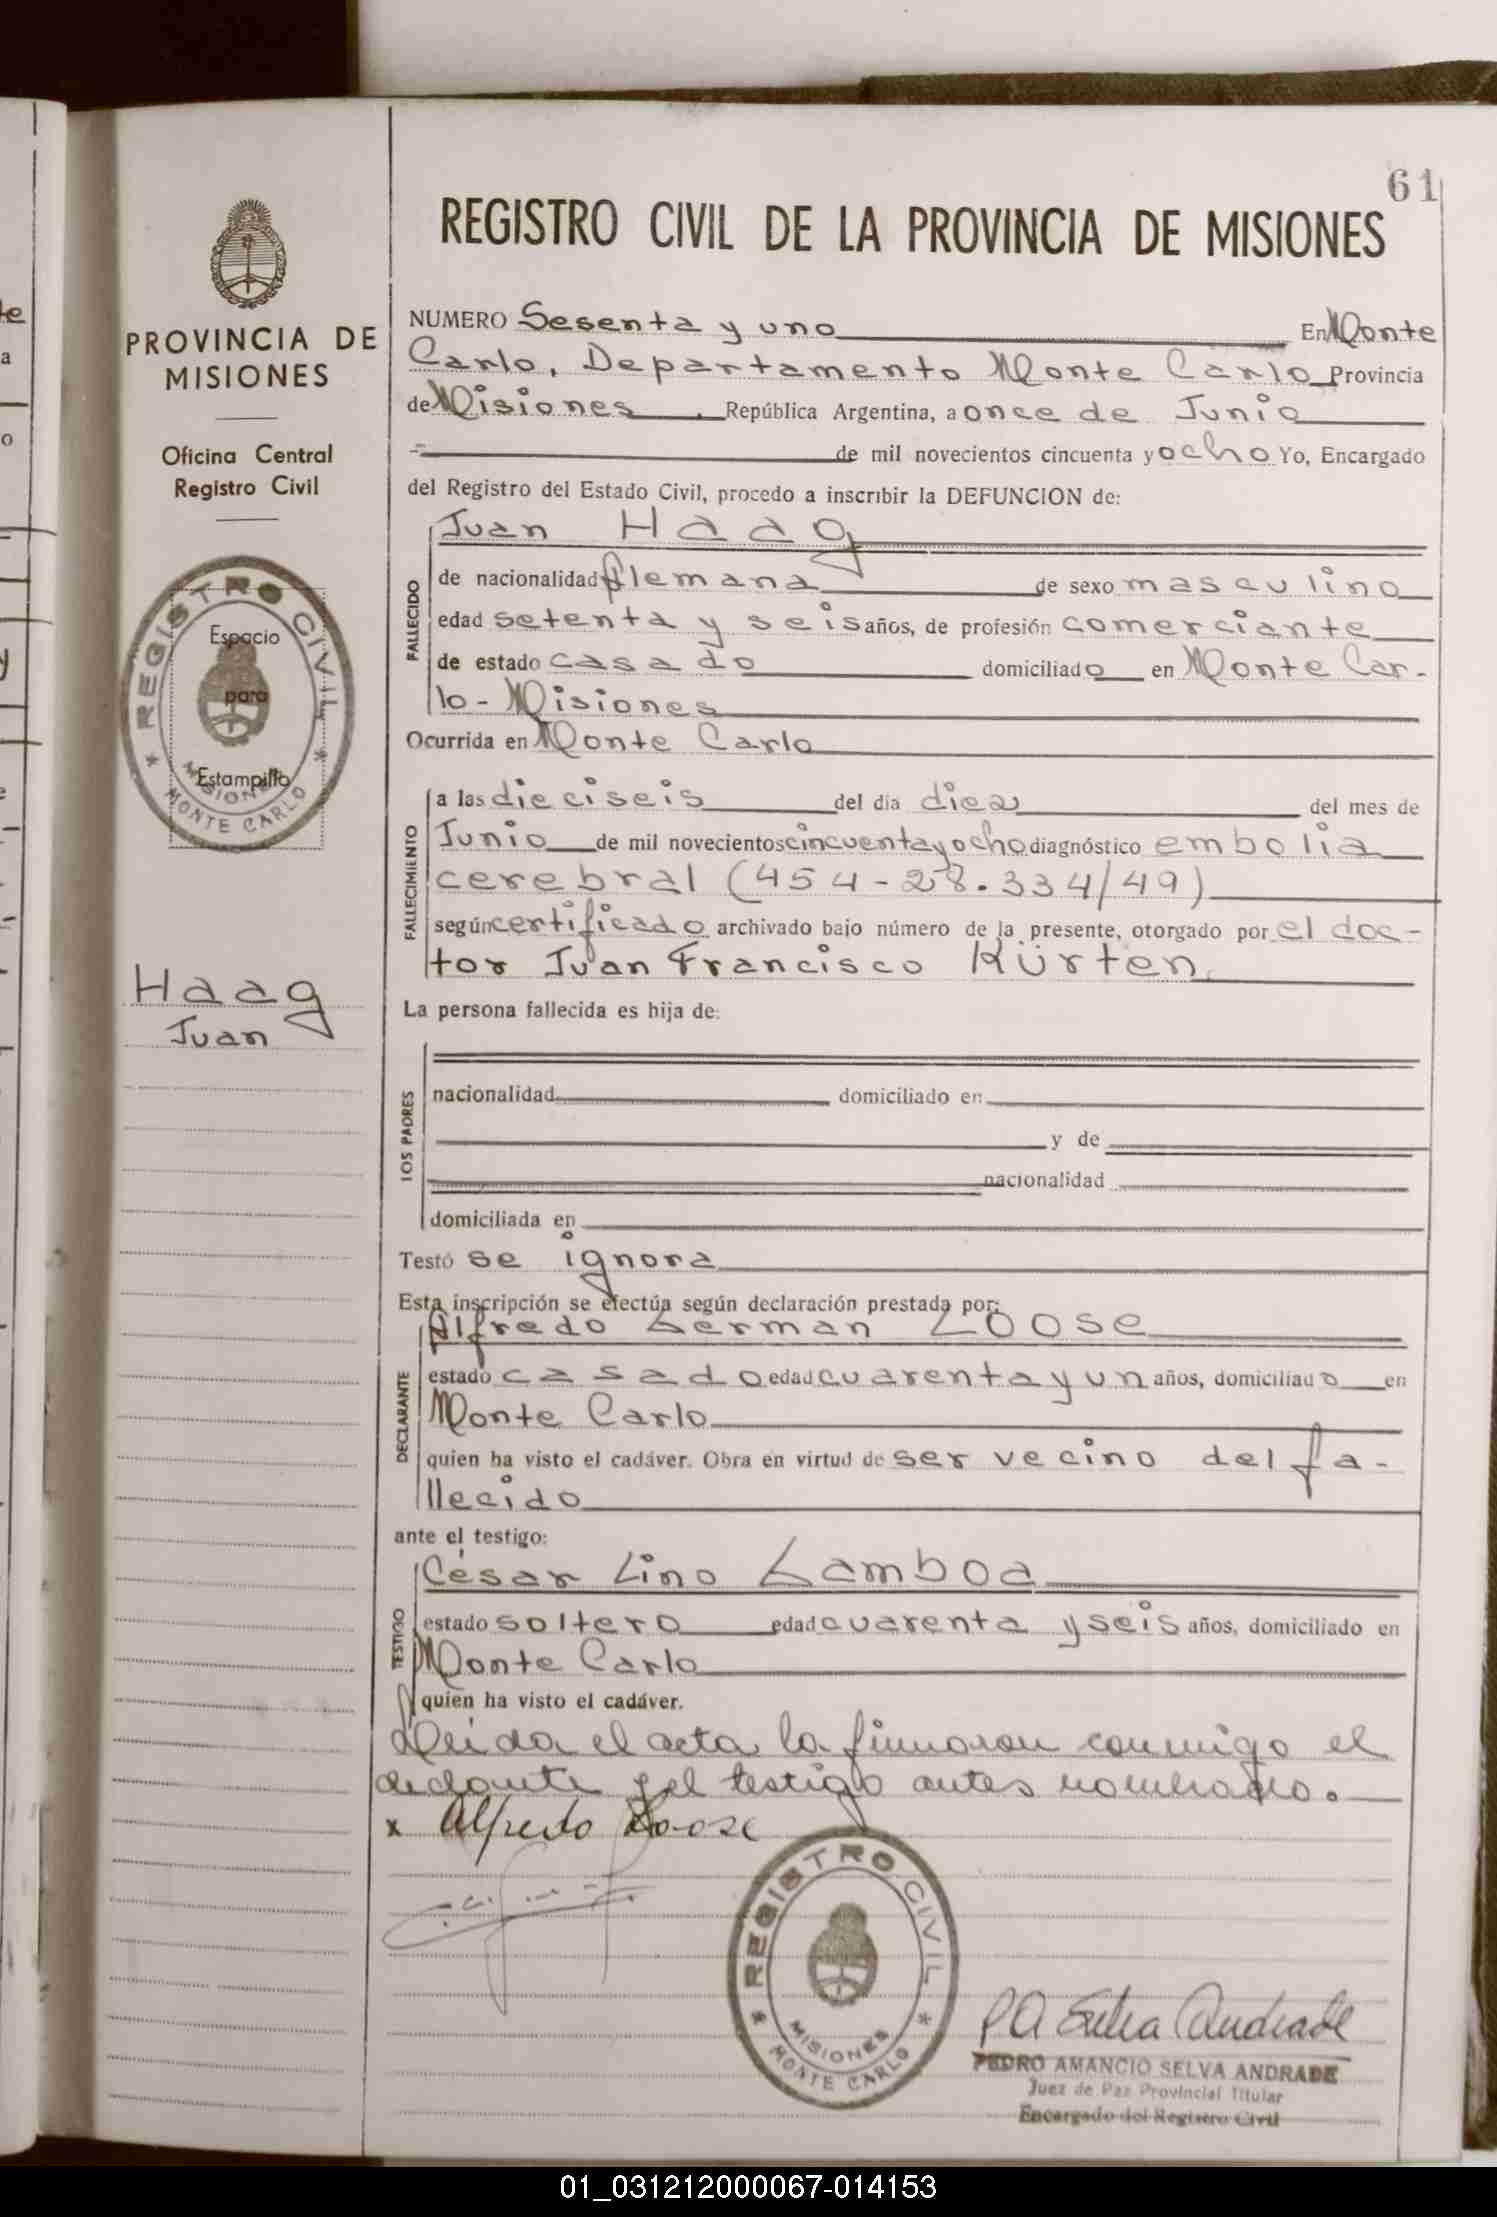 61
REGISTRO CIVIL DE LA PROVINCIA DE MISIONES
PROVINCIA DE
MISIONES
Oficina Central
Registro Civil
REGISTRO CIVIL
Espacio
para
Estampilla
MISIONES
* MONTE CARLO *
Haag
Juan
NUMERO Sesenta y uno En Monte
Carlo, Departamento Monte Carlo Provincia
de Misiones, República Argentina, a once de Junio
de mil novecientos cincuenta y ocho Yo, Encargado
del Registro del Estado Civil, procedo a inscribir la DEFUNCION de:
FALLECIDO
Juan Haag
de nacionalidad Alemana de sexo masculino
edad setenta y seis años, de profesión comerciante
de estado casado domiciliado en Monte Car-
lo - Misiones
Ocurrida en Monte Carlo
FALLECIMIENTO
a las dieciseis del día diez del mes de
Junio de mil novecientos cincuenta y ocho diagnóstico embolia
cerebral (454-28.334/49)
según certificado archivado bajo número de la presente, otorgado por el doc-
tor Juan Francisco Kürten
La persona fallecida es hija de:
LOS PADRES
nacionalidad domiciliado en
y de
nacionalidad
domiciliada en
Testó se ignora
Esta inscripción se efectúa según declaración prestada por:
DECLARANTE
Alfredo German Loose
estado casado edad cuarenta y un años, domiciliado en
Monte Carlo
quien ha visto el cadáver. Obra en virtud de ser vecino del fa-
llecido
ante el testigo:
TESTIGO
César Lino Gamboa
estado soltero edad cuarenta y seis años, domiciliado en
Monte Carlo
quien ha visto el cadáver.
Leida el acta la firmaron conmigo el
declarante y el testigo antes nombrado.
x Alfredo Loose
REGISTRO CIVIL
MISIONES
* MONTE CARLO *
PA Selva Andrade
PEDRO AMANCIO SELVA ANDRADE
Juez de Paz Provincial Titular
Encargado del Registro Civil
01_031212000067-014153